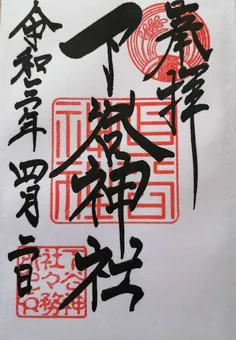 奉拝
下谷神社
令和三年四月二日
下谷神社
下谷神
社々務
所之印